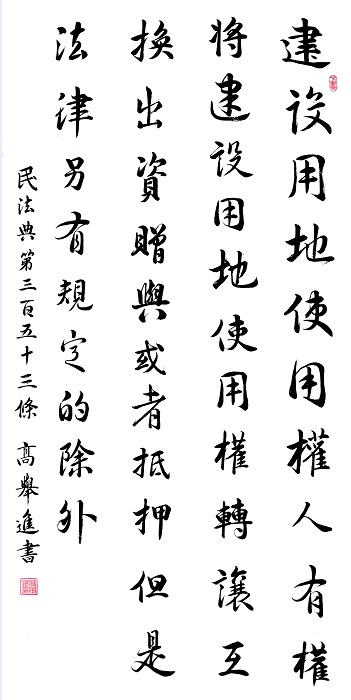 建設用地使用權人有權
將建設用地使用權轉讓互
換出資贈與或者抵押但是
法律另有規定的除外
民法典第三百五十三條 高舉進書